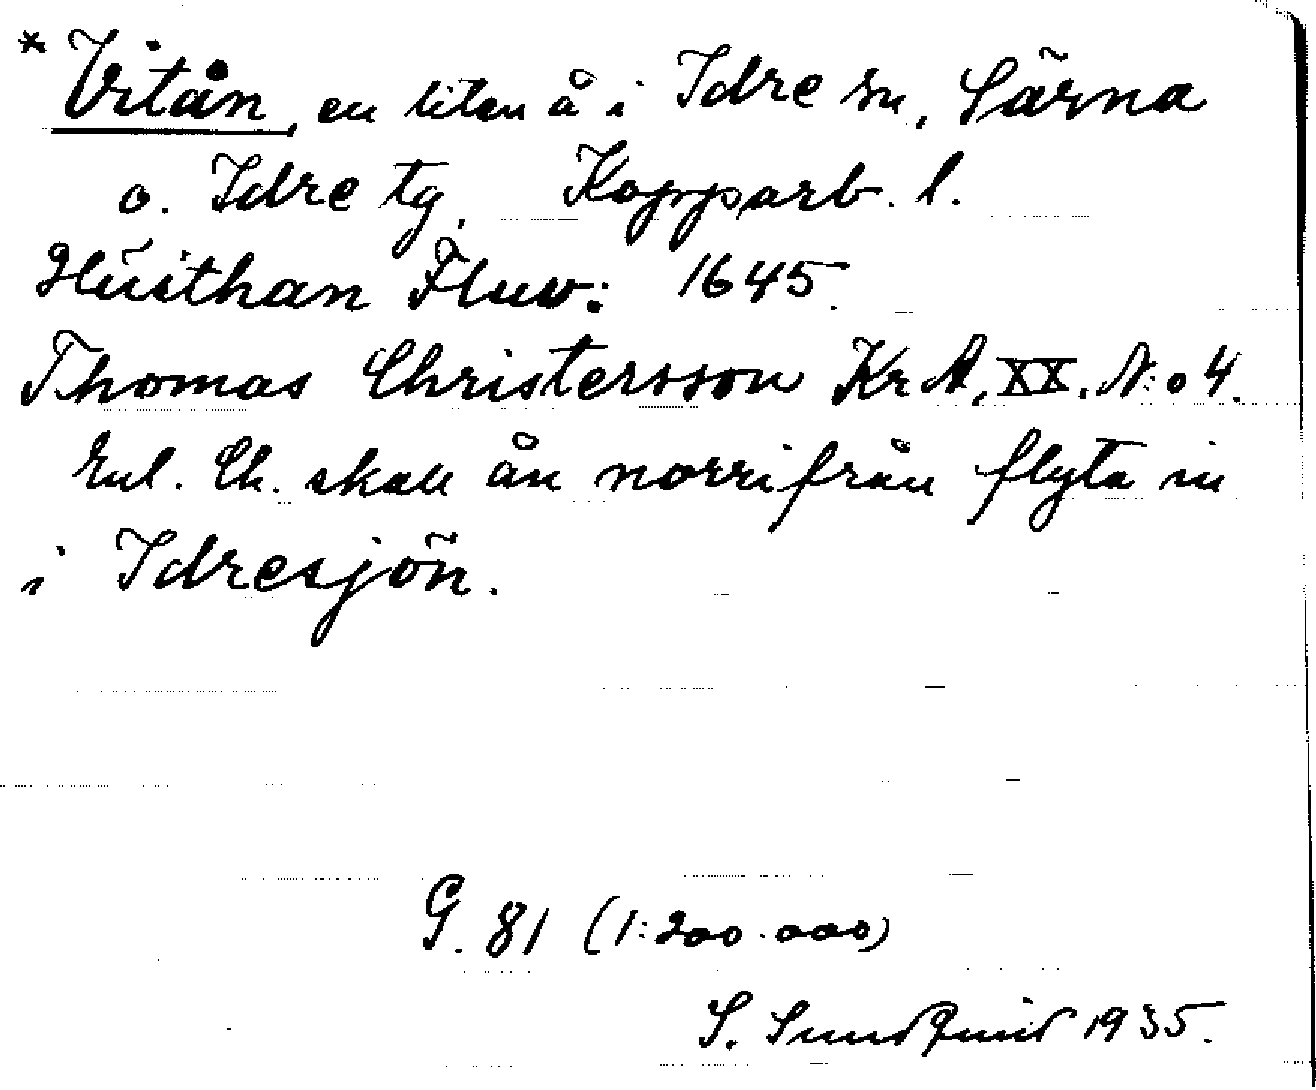 * Vitån, en liten å i Idre sn, Särna
o. Idre tg. Kopparb. l.
Huithan Fluv: 1645.
Thomas Christersson Kr A, XX. N:o 4.
Enl. Ch. skall ån norrifrån flyta in
i Idresjön.
G. 81 (1:200.000)
S. Sundquist 1935.